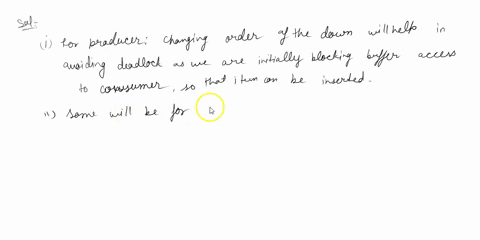 Sol:-
(i) For producer: Changing order of the down will help in
avoiding deadlock as we are initially blocking buffer access
to cosusumer, so that item can be inserted.
ii) Same will be for